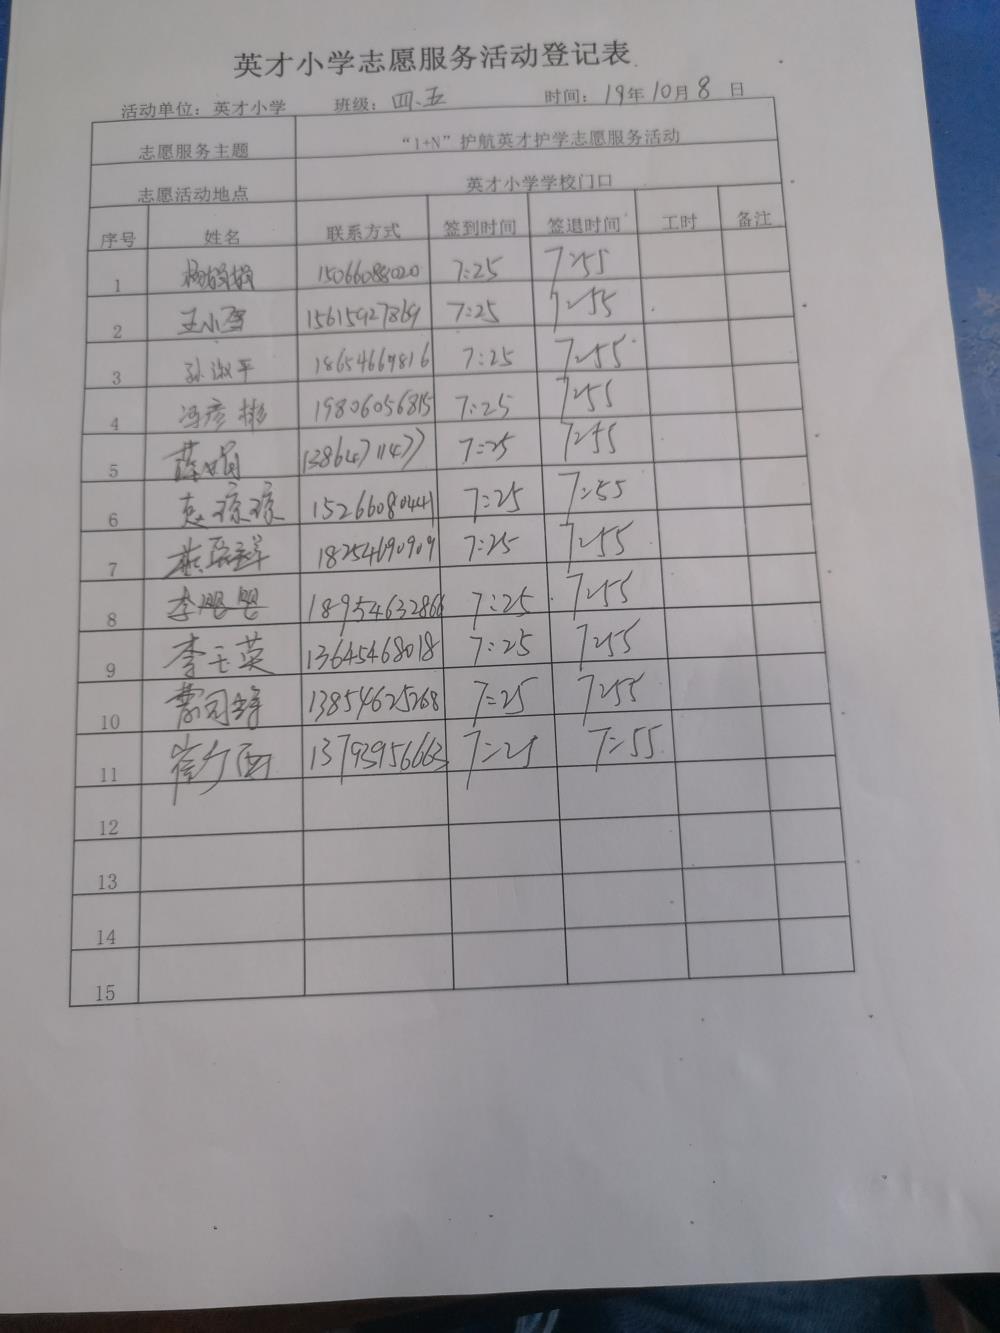 英才小学志愿服务活动登记表
活动单位：英才小学 班级：四.五 时间：19年10月8日
志愿服务主题 “1+N”护航英才护学志愿服务活动
志愿活动地点 英才小学学校门口
序号 姓名 联系方式 签到时间 签退时间 工时 备注
1 杨敏敏 15066088020 7:25 7:55
2 王小雪 15615927869 7:25 7:55
3 孙淑平 18654669816 7:25 7:55
4 冯彦彬 19806056815 7:25 7:55
5 薛娟 13864711477 7:25 7:55
6 琼琼 15266080441 7:25 7:55
7 燕 18254690909 7:25 7:55
8 李 18954632866 7:25 7:55
9 李玉英 13645468018 7:25 7:55
10 13854625268 7:25 7:55
11 崔 13793956663 7:25 7:55
12
13
14
15